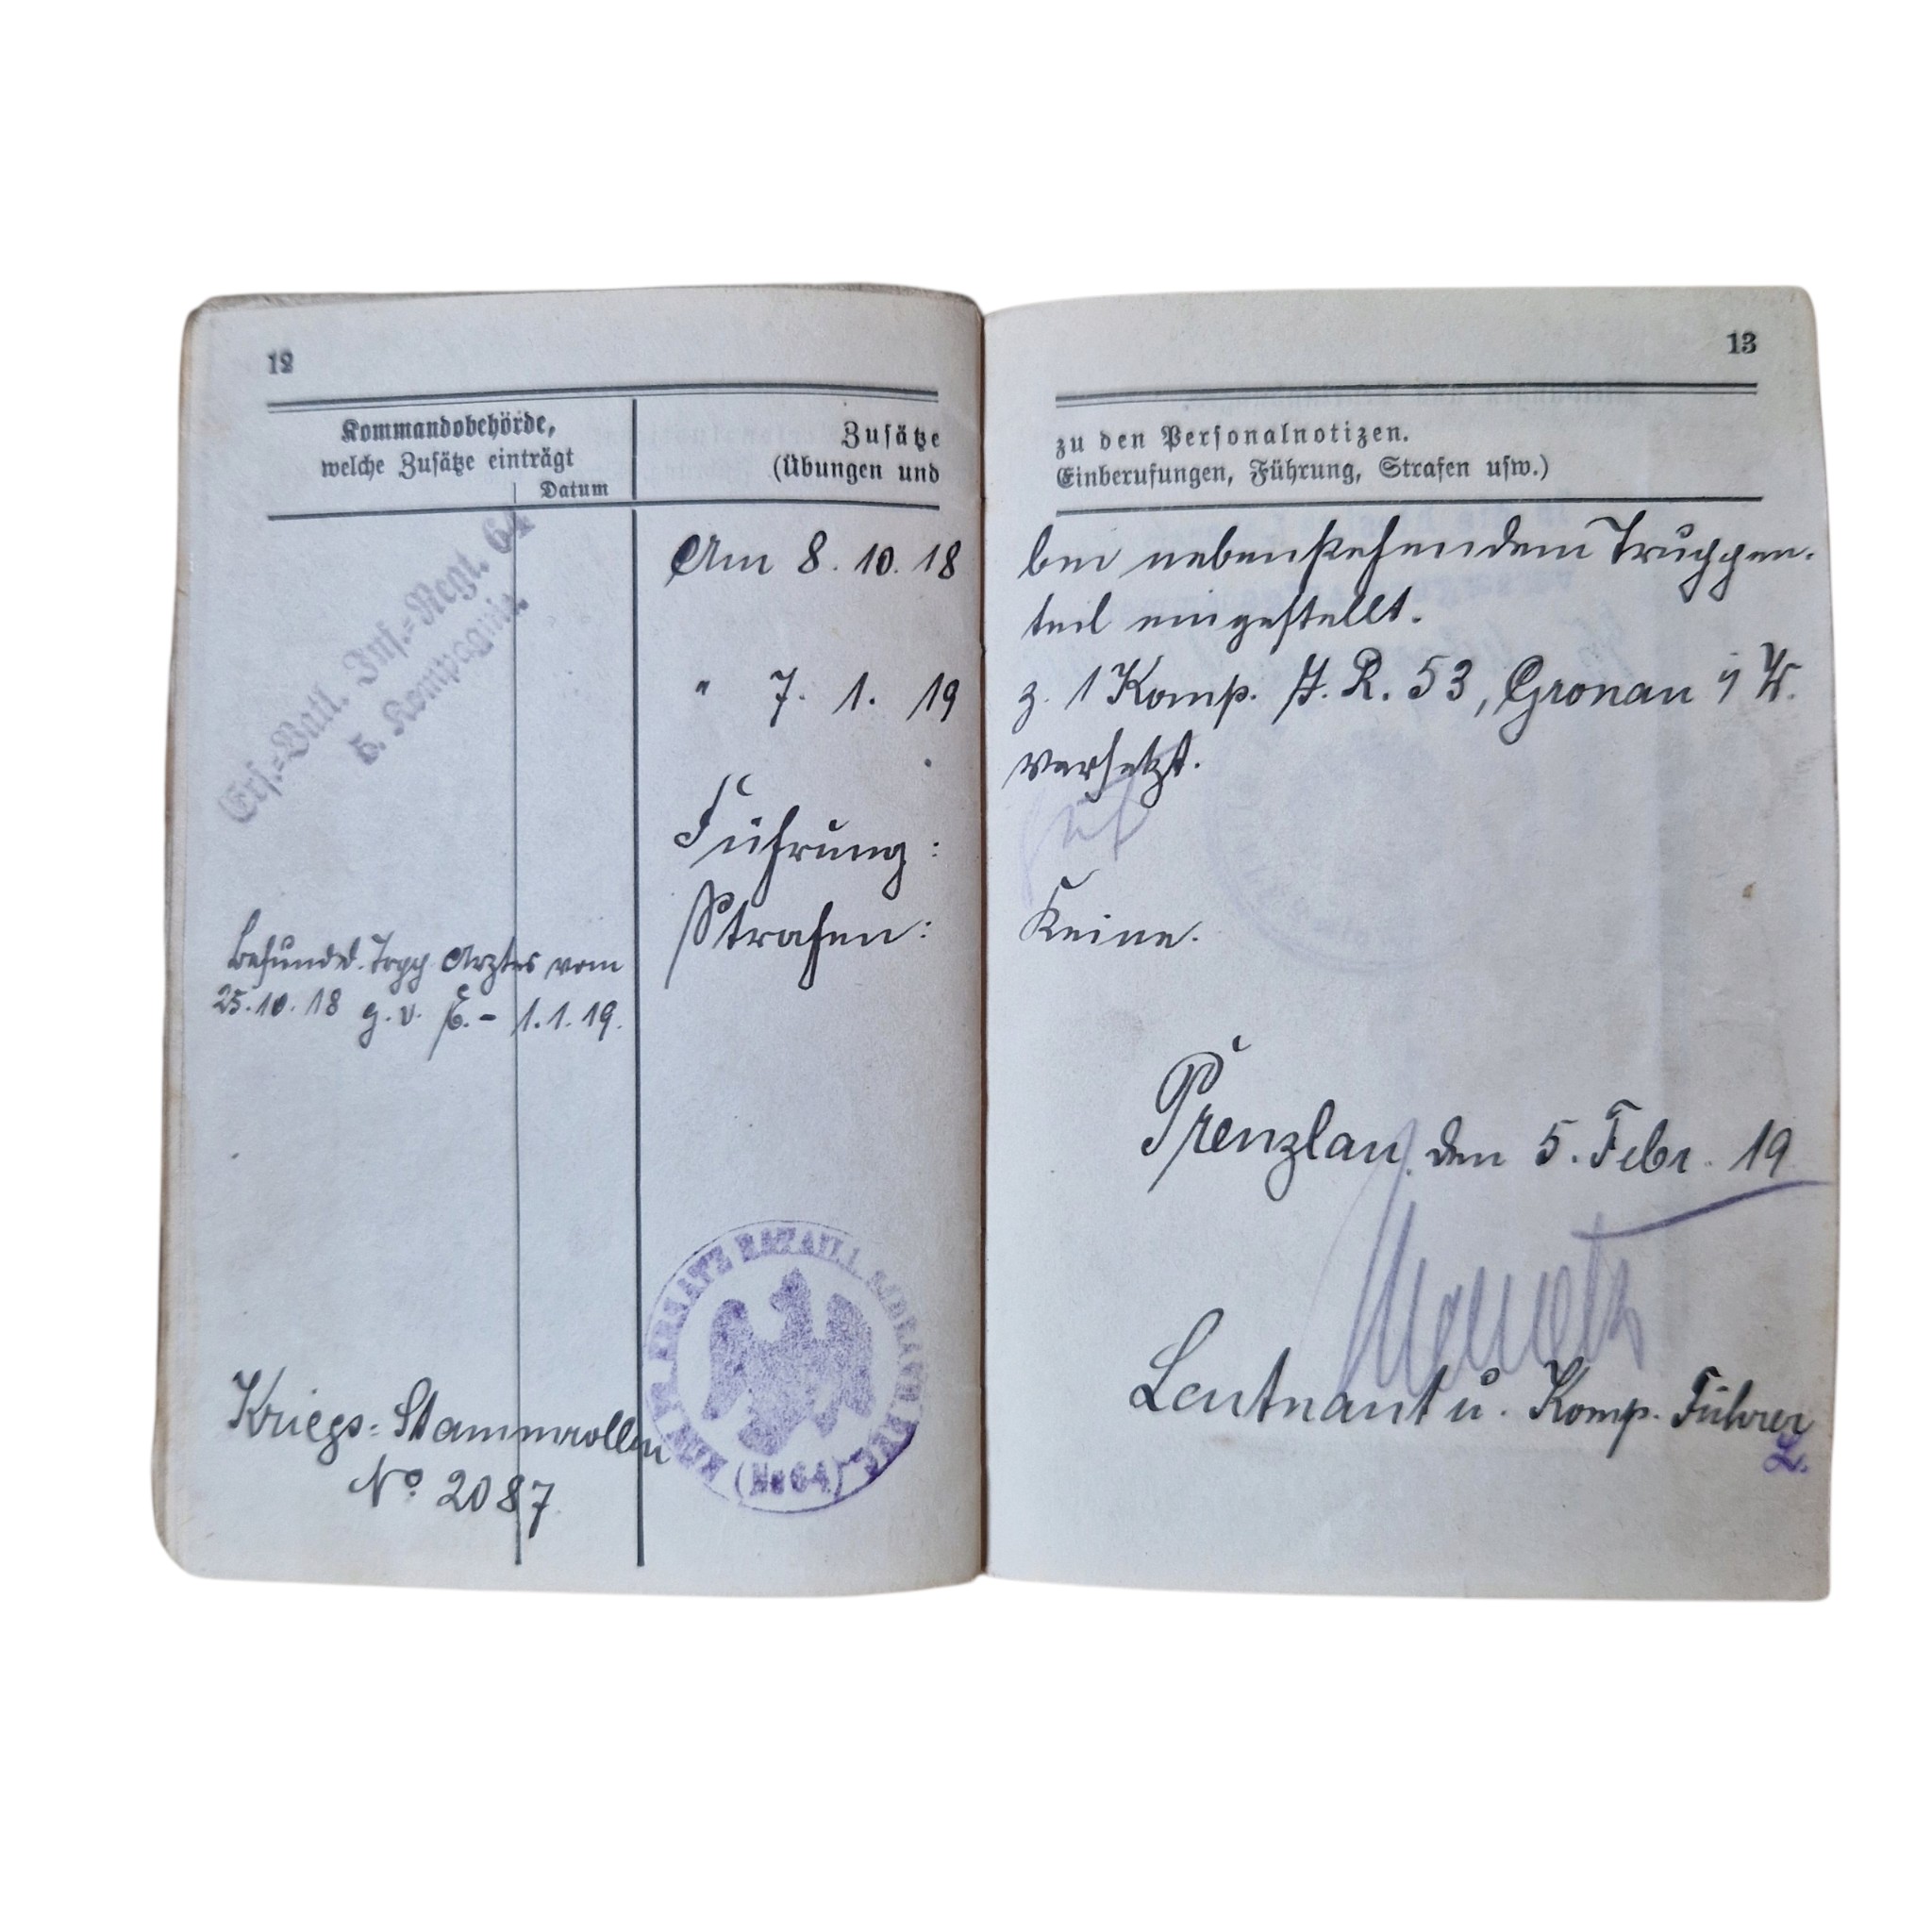 12
Kommandobehörde,
welche Zusätze einträgt
Datum
Zusätze
(Übungen und
Ers.=Batl. Inf.=Regt. 64
5. Kompagnie.
Am 8. 10. 18
" 7. 1. 19
Führung:
Strafen:
Befund d. Trpp Arztes vom
25.10.18 g. v. - 1.1.19.
Kriegs=Stammrollen
No 2087
ERSATZ BATAILL.
(No 64)
13
zu den Personalnotizen.
Einberufungen, Führung, Strafen usw.)
bei nebenstehendem Truppen-
teil eingestellt.
z. 1 Komp. J. R. 53, Gronau i W.
versetzt.
gut
Keine.
Prenzlau, den 5. Febr. 19
Leutnant u. Komp. Führer
L.